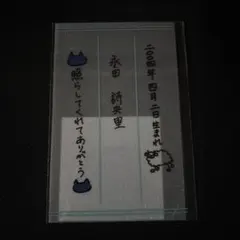 二〇〇四年 四月二日生まれ
永田 詩央里
照らしてくれてありがとう